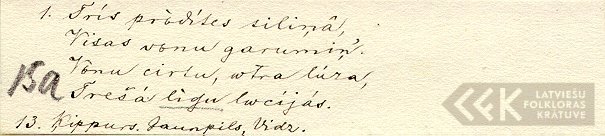 1. Trīs prōdītes siliņâ,
Visas vonu garumiņ'.
Vōnu cirtu, wtra lūza,
15a
Trešá ligu lwcijás.
13. Kippurs. Jaunpils, Vidz.
LATVIEŠU
FOLKLORAS
KRĀTUVE